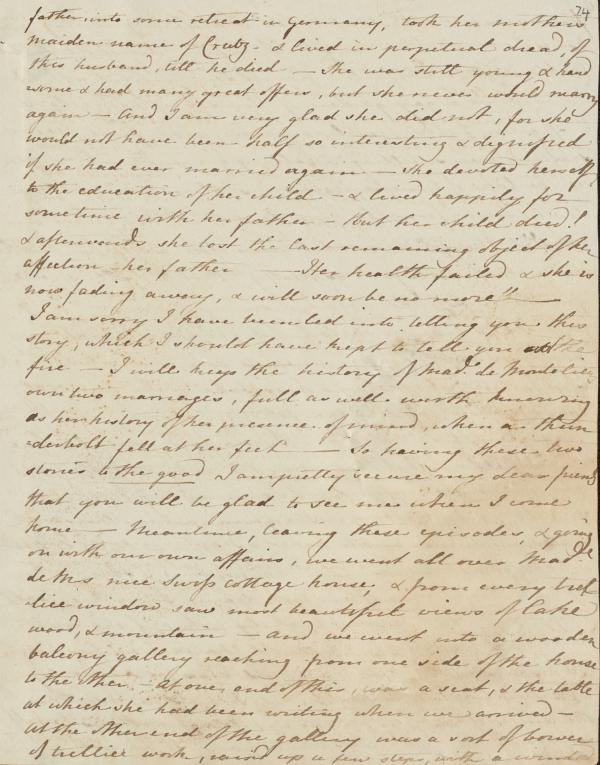 74
father, into some retreat in Germany, took her mother's
maiden name of Crubz - & lived in perpetual dread, of
this husband, till he died — She was still young & hand
=some & had many great offers, but she never would marry
again — And I am very glad she did not, for she
would not have been half so interesting & dignified
if she had ever married again — She devoted herself
to the education of her child — & lived happily for
sometime with her father — But her child died!
& afterwards she lost the last remaining object of her
affection - her father — Her health failed & she is
now fading away, & will soon be no more" —
I am sorry I have been led into telling you this
story, which I should have kept to tell you the
fire — I will keep the history of Mad. de Montolieu's
own two marriages, full as well worth knowing
as her history of her presence of mind, when a thun
=derbolt fell at her feet — So having these two
stories to the good I am pretty secure my dear friends
that you will be glad to see me when I come
home — Meantime, leaving these episodes, & going
on with our own affairs, we went all over Mad.de
de M's nice Swiss cottage house, & from every trel
-lice window saw most beautiful views of lake
wood, & mountain — and we went into a wooden
balcony gallery reaching from one side of the house
to the other - At one end of this, was a seat, & the table
at which she had been writing when we arrived —
at the other end of the gallery was a sort of bower
of trellice work, raised up a few steps, with a window